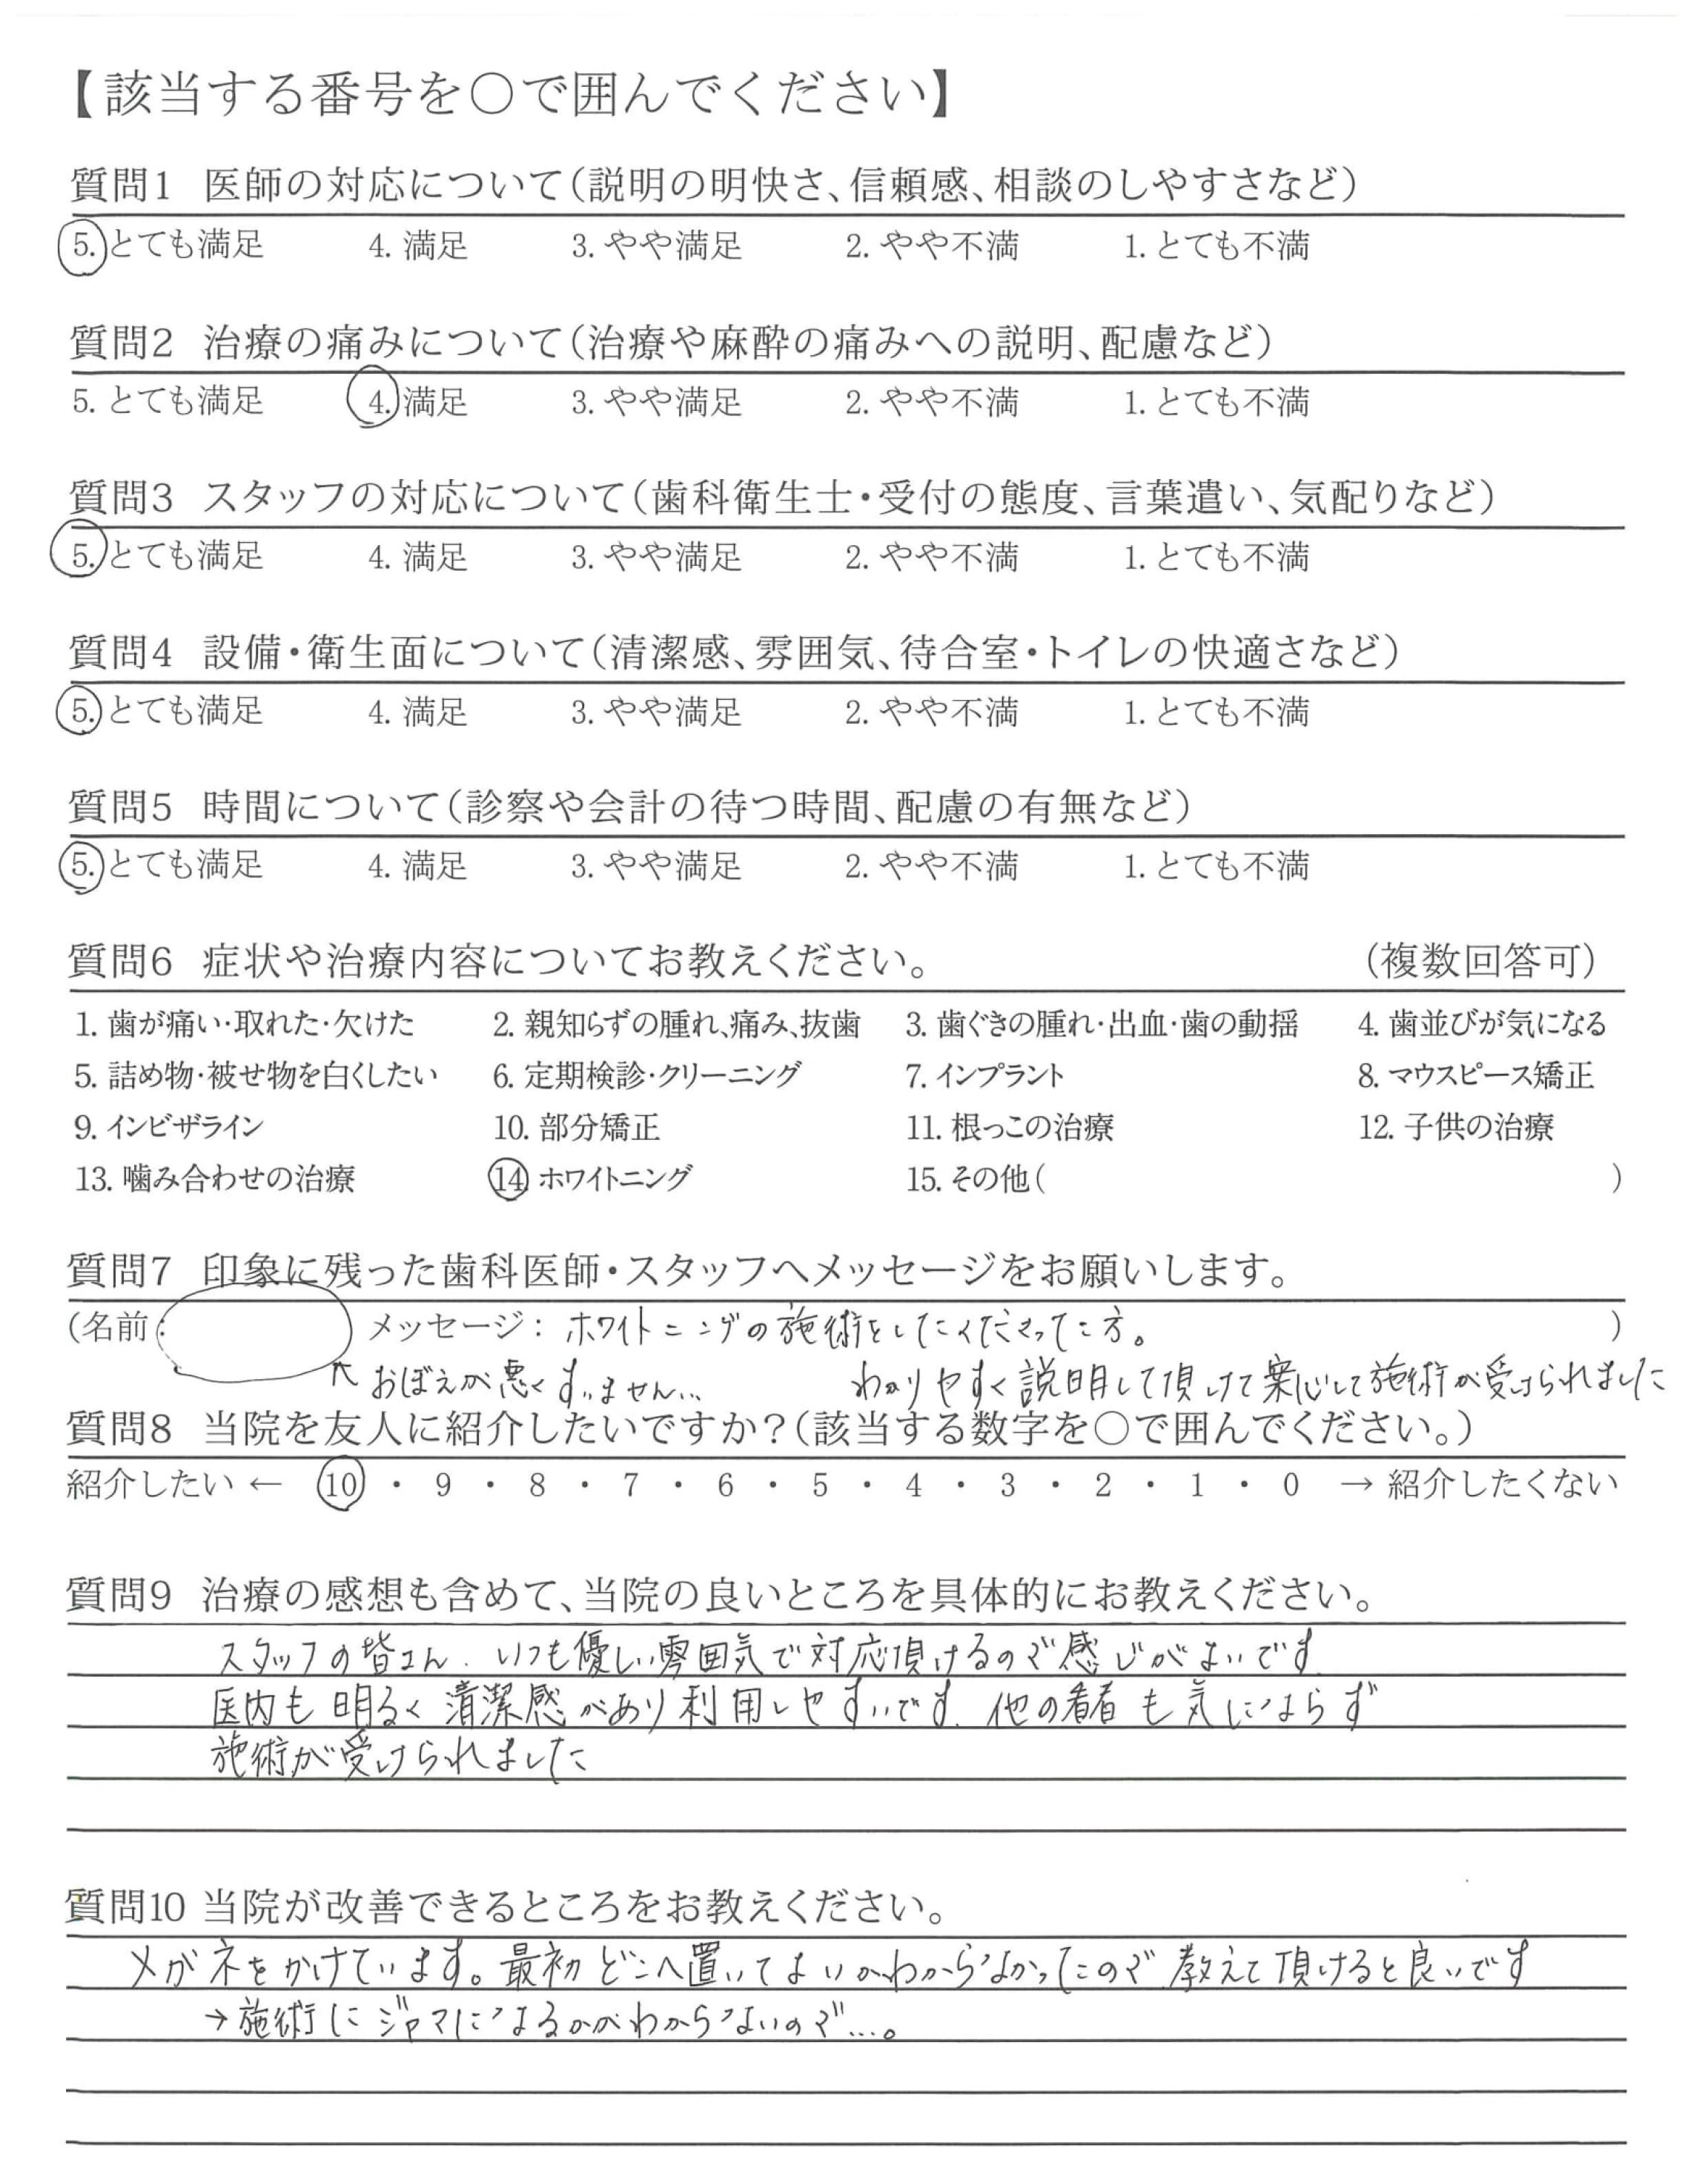 【該当する番号を○で囲んでください】
質問1 医師の対応について（説明の明快さ、信頼感、相談のしやすさなど）
5. とても満足 4. 満足 3. やや満足 2. やや不満 1. とても不満
質問2 治療の痛みについて（治療や麻酔の痛みへの説明、配慮など）
5. とても満足 4. 満足 3. やや満足 2. やや不満 1. とても不満
質問3 スタッフの対応について（歯科衛生士・受付の態度、言葉遣い、気配りなど）
5. とても満足 4. 満足 3. やや満足 2. やや不満 1. とても不満
質問4 設備・衛生面について（清潔感、雰囲気、待合室・トイレの快適さなど）
5. とても満足 4. 満足 3. やや満足 2. やや不満 1. とても不満
質問5 時間について（診察や会計の待つ時間、配慮の有無など）
5. とても満足 4. 満足 3. やや満足 2. やや不満 1. とても不満
質問6 症状や治療内容についてお教えください。 （複数回答可）
1. 歯が痛い・取れた・欠けた 2. 親知らずの腫れ、痛み、抜歯 3. 歯ぐきの腫れ・出血・歯の動揺 4. 歯並びが気になる
5. 詰め物・被せ物を白くしたい 6. 定期検診・クリーニング 7. インプラント 8. マウスピース矯正
9. インビザライン 10. 部分矯正 11. 根っこの治療 12. 子供の治療
13. 噛み合わせの治療 14. ホワイトニング 15. その他（ ）
質問7 印象に残った歯科医師・スタッフへメッセージをお願いします。
（名前： メッセージ：ホワイトニングの施術をしてくださった方。 ）
↖おぼえが悪くすいません… わかりやすく説明して頂けて安心して施術が受けられました
質問8 当院を友人に紹介したいですか？（該当する数字を○で囲んでください。）
紹介したい ← 10 ・ 9 ・ 8 ・ 7 ・ 6 ・ 5 ・ 4 ・ 3 ・ 2 ・ 1 ・ 0 → 紹介したくない
質問9 治療の感想も含めて、当院の良いところを具体的にお教えください。
スタッフの皆さん、いつも優しい雰囲気で対応頂けるので感じがよいです
医内も明るく清潔感があり利用しやすいです。他の患者も気にならず
施術が受けられました
質問10 当院が改善できるところをお教えください。
メガネをかけています。最初どこへ置いてよいかわからなかったので教えて頂けると良いです
→施術にジャマになるかがわからないので…。